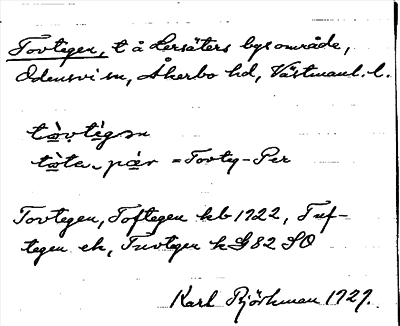 Tovtegen, t å Lersäters bys område,
Odensvi sn, Åkerbo hd, Västmanl. l.
tàvtègən
tòta pær = Tovtg-Per
Tovtegen, Toftegen kb 1722, Tuf-
tegen ek, Tuvtegen k G 82 SO
Karl Björkman 1929.